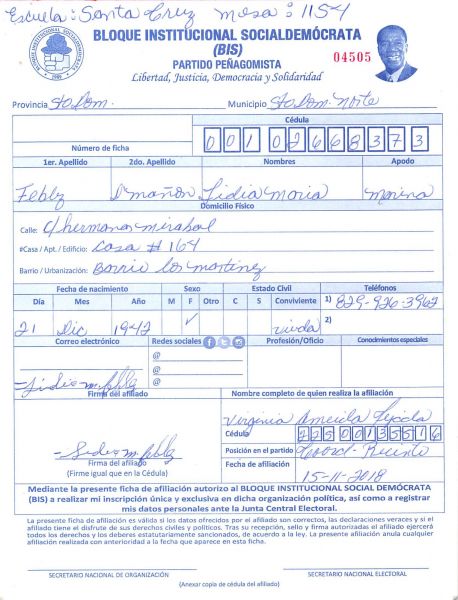 Escuela: Santa Cruz mesa: 1154
BLOQUE INSTITUCIONAL SOCIALDEMÓCRATA
(BIS)
04505
PARTIDO PEÑAGOMISTA
Libertad, Justicia, Democracia y Solidaridad
Provincia Sto Dom. Municipio Sto Dom. Norte
Cédula
Número de ficha 001 0266837 3
1er. Apellido 2do. Apellido Nombres Apodo
Febliz Lidia Maria Morena
Domicilio Físico
Calle: c/ hermanas mirabal
#Casa / Apt. / Edificio: Casa # 164
Barrio / Urbanización: Barrio los martinez
Fecha de nacimiento Sexo Estado Civil Teléfonos
Día Mes Año M F Otro C S Conviviente 1) 829-926-3962
21 Dic 1942 ✓ viuda 2)
Correo electrónico Redes sociales Profesión/Oficio Conocimientos especiales
@
@
@
Firma del afiliado Nombre completo de quien realiza la afiliación
Virginia Tejada
Cédula
225 0013551 6
Posición en el partido Coord. Recinto
Firma del afiliado
(Firme igual que en la Cédula)
Fecha de afiliación
15-11-2018
Mediante la presente ficha de afiliación autorizo al BLOQUE INSTITUCIONAL SOCIAL DEMÓCRATA
(BIS) a realizar mi inscripción única y exclusiva en dicha organización política, así como a registrar
mis datos personales ante la Junta Central Electoral.
La presente ficha de afiliación es válida si los datos ofrecidos por el afiliado son correctos, las declaraciones veraces y si el
afiliado tiene el disfrute de sus derechos civiles y políticos. Tras su recepción, sello y firma autorizadas el afiliado ejercerá
todos los derechos y los deberes estatutariamente sancionados, de acuerdo a la ley. La presente afiliación anula cualquier
afiliación realizada con anterioridad a la fecha que aparece en esta ficha.
SECRETARIO NACIONAL DE ORGANIZACIÓN SECRETARIO NACIONAL ELECTORAL
(Anexar copia de cédula del afiliado)